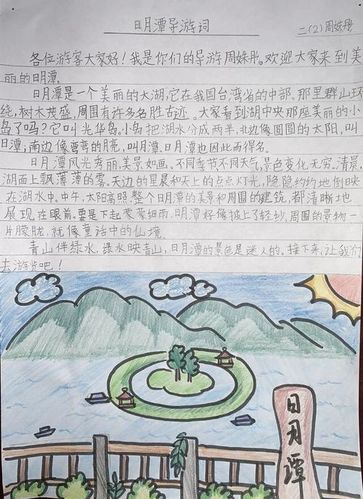 日月潭导游词
二(2)周姝彤
各位游客大家好！我是你们的导游周姝彤。欢迎大家来到美
丽的日月潭。
日月潭是一个美丽的大湖，它在我国台湾省的中部。那里群山环
绕，树木茂盛，周围有许多名胜古迹。大家看到湖中央那座美丽的小
岛了吗？它叫光华岛。小岛把湖水分成两半，北边像圆圆的太阳，叫
日潭；南边像弯弯的月亮，叫月潭。日月潭也因此而得名。
日月潭风光秀丽，美景如画。不同季节不同天气，景色变化无穷。清晨，
湖面上飘着薄薄的雾。天边的星晨和天上的点点灯光，隐隐约约地倒映
在湖水中。中午，太阳高照，整个日月潭的美景和周围的建筑，都清晰地
展现在眼前。要是下起蒙蒙细雨，日月潭好像披上了轻纱，周围的景物一
片朦胧，就像童话中的仙境。
青山伴绿水，绿水映青山，日月潭的景色是迷人的。接下来，让我们
去游览吧！
日月潭